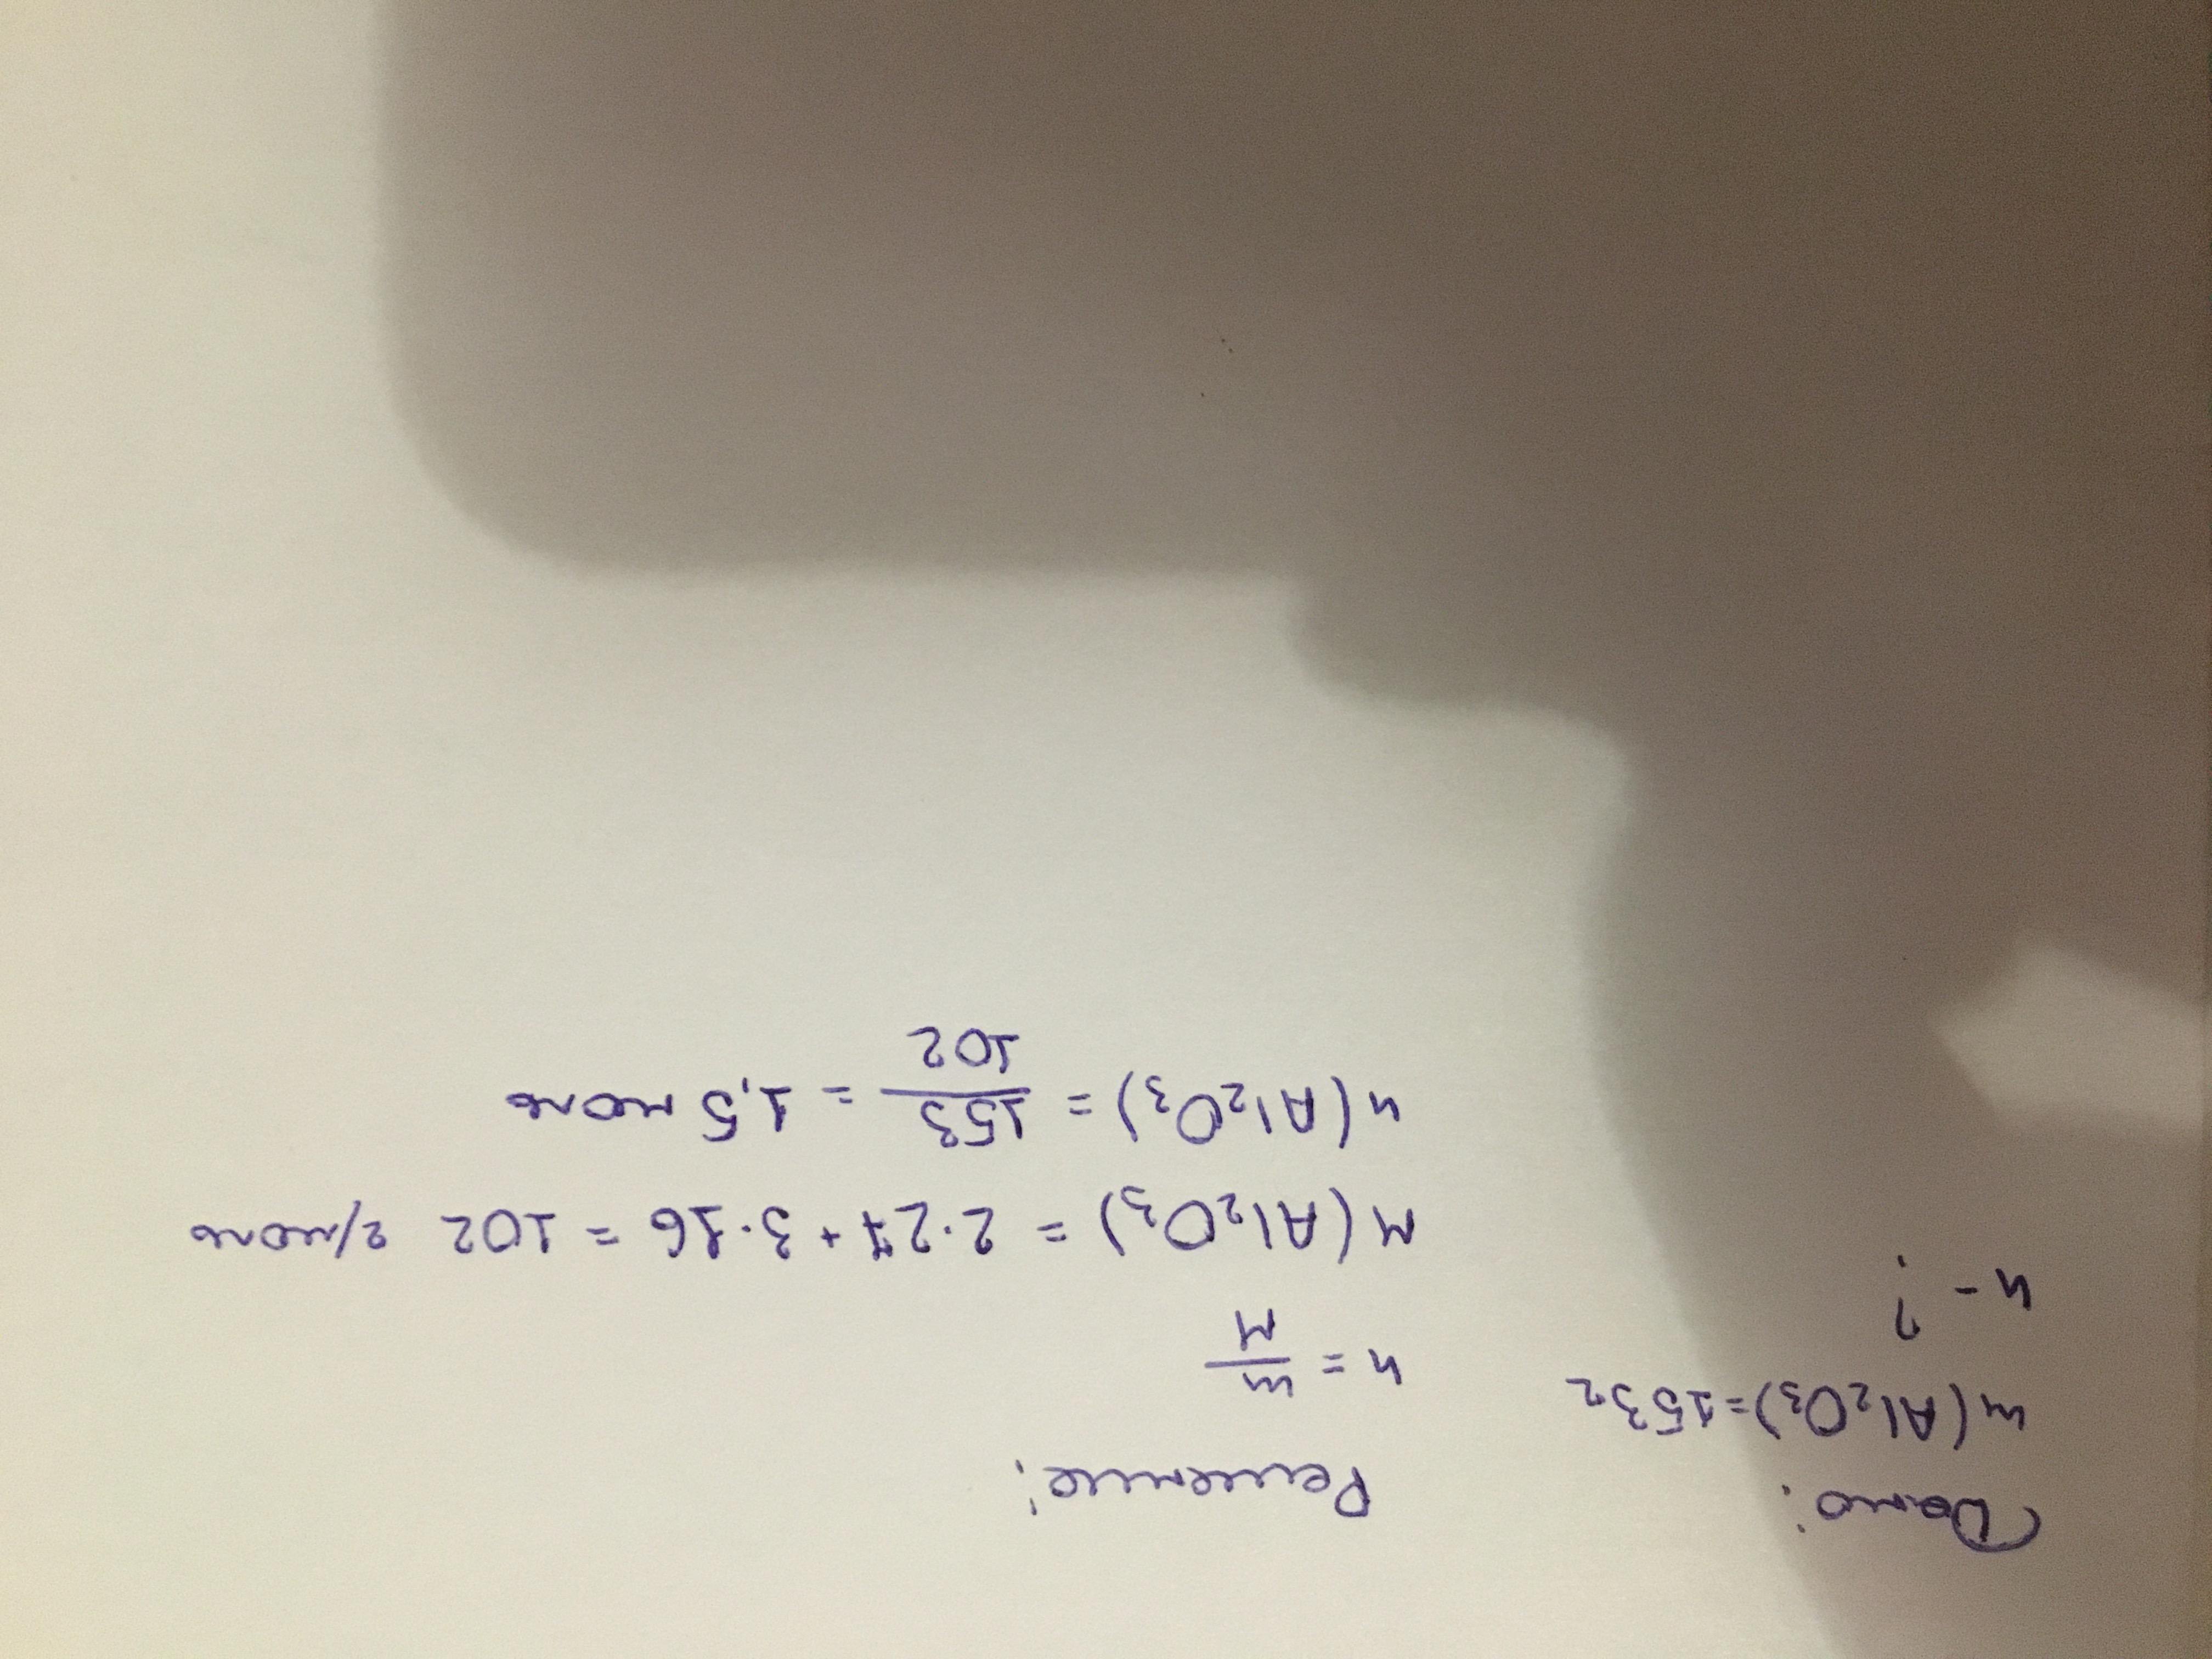 Дано:
m(Al₂O₃)=153г
n - ?
Решение:
n = m/M
M(Al₂O₃) = 2·27+3·16 = 102 г/моль
n(Al₂O₃) = 153/102 = 1,5 моль